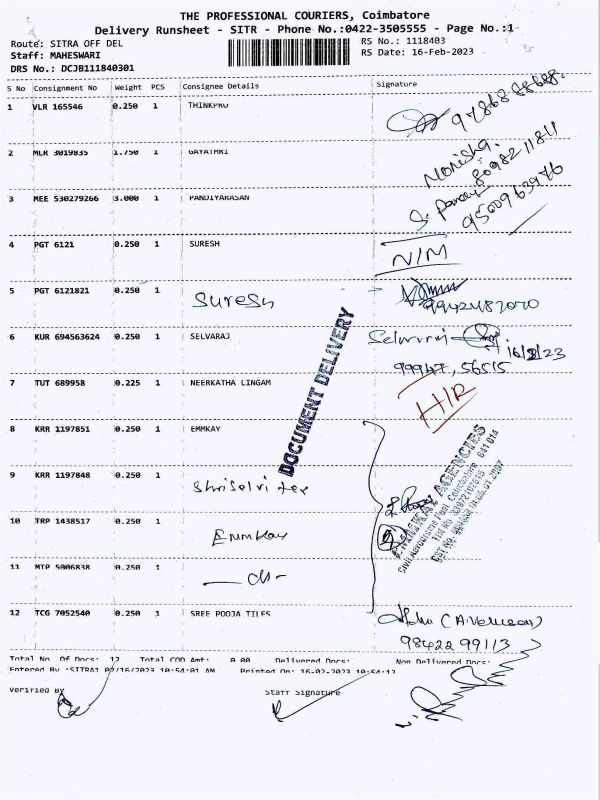 THE PROFESSIONAL COURIERS, Coimbatore
Delivery Runsheet - SITR - Phone No.:0422-3505555 - Page No.:1
Route: SITRA OFF DEL RS No.: 1118403
Staff: MAHESWARI RS Date: 16-Feb-2023
DRS No.: DCJB111840301
S No Consignment No Weight PCS Consignee Details Signature
1 VLR 165546 0.250 1 THINKPRO
2 MLR 3019835 1.750 1 GAYATHRI 8098211811
3 MEE 530279266 3.000 1 PANDIYARASAN 9500963976
4 PGT 6121 0.250 1 SURESH N/M
5 PGT 6121821 0.250 1 Suresh
6 KUR 694563624 0.250 1 SELVARAJ Selvaraj
99947, 56515
7 TUT 689958 0.225 1 NEERKATHA LINGAM H/R
DOCUMENT DELIVERY
8 KRR 1197851 0.250 1 EMMKAY
9 KRR 1197848 0.250 1 Shriselvi tex
10 TRP 1438517 0.250 1 Emmkay
11 MTP 5006838 0.250 1
12 TCG 7052540 0.250 1 SREE POOJA TILES
98422 99113
Total No. Of Docs: 12 Total COD Amt: 0.00 Delivered Docs: Non Delivered Docs:
Entered By :SITRA1 02/16/2023 10:54:01 AM Printed On: 16-02-2023 10:54:12
Verified By Staff Signature